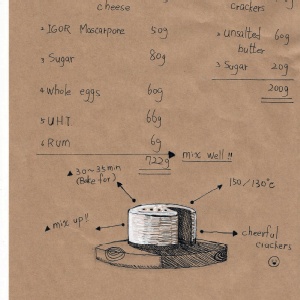 cheese
crackers
2 IGOR Mascarpone 50g
2 unsalted 60g
butter
3 Sugar 80g
3 Sugar 20g
200g
4 Whole eggs 60g
5 U.H.T. 66g
6 Rum 6g
722g
mix well!!
30~35min
(Bake for)
150/130°c
mix up!!
cheerful
crackers